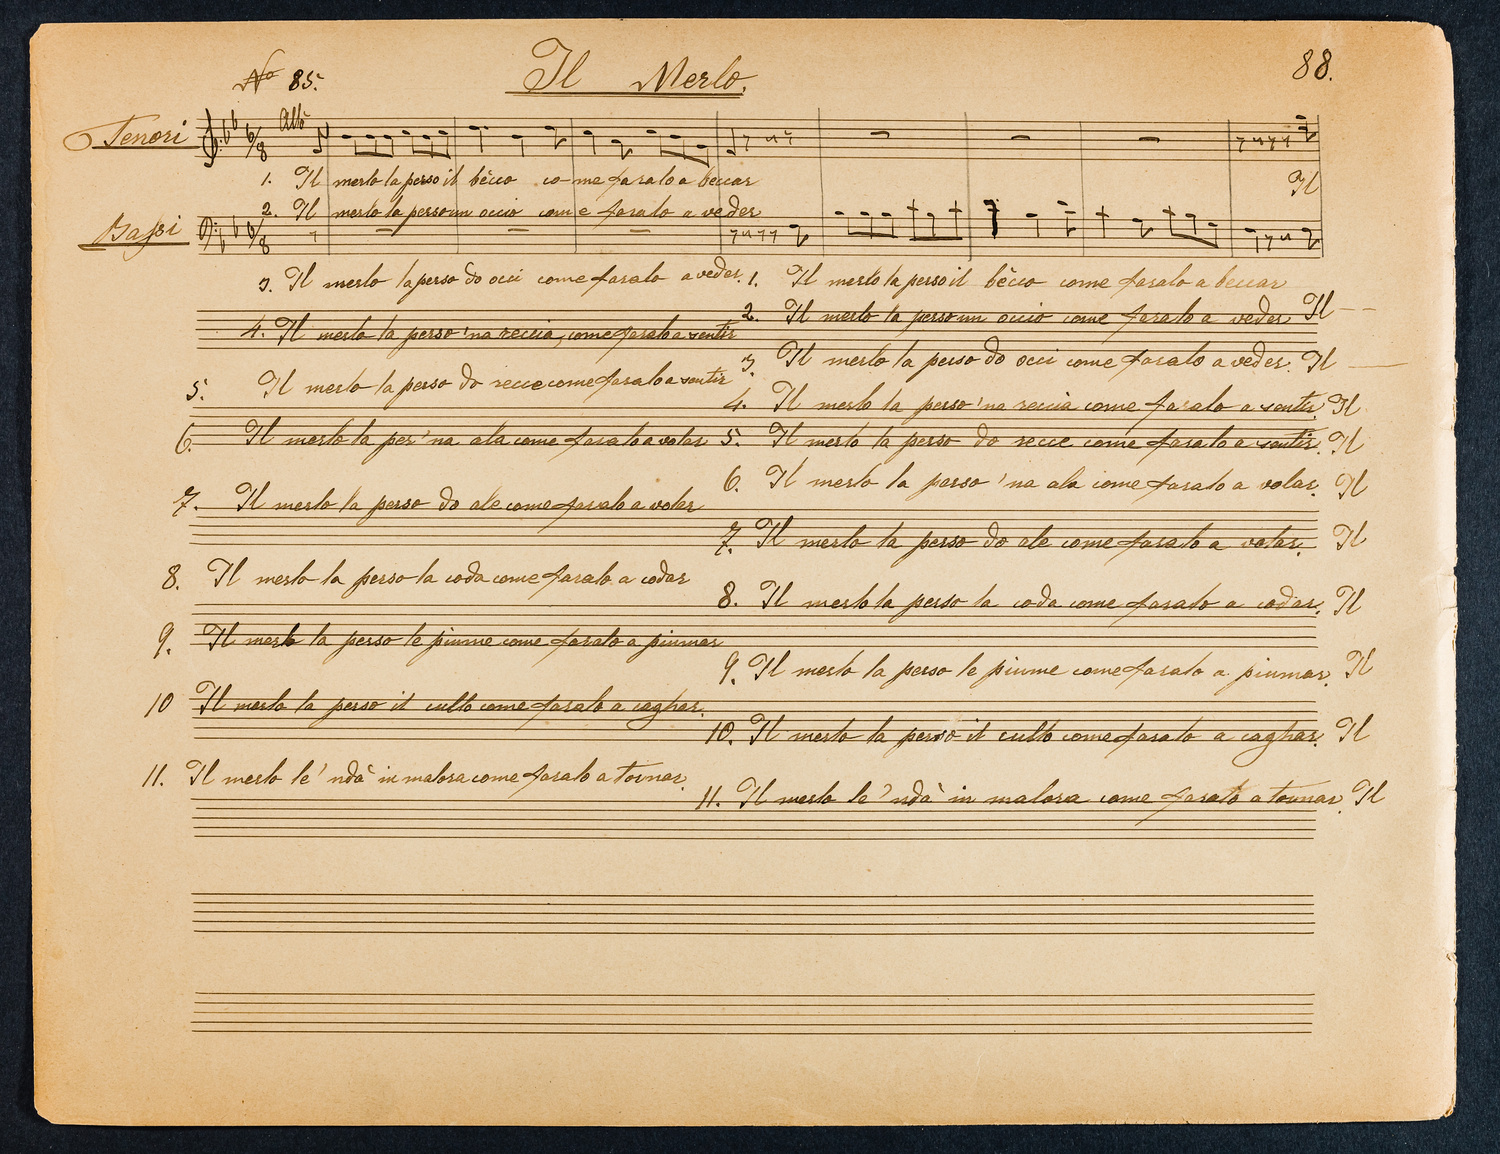 No 85.
Il Merlo.
88.
Tenori
Allo
6/8
1. Il merlo la perso il bècco co-me farala a beccar
Il
2. Il merlo la perso un occio come farala a veder
Bassi
6/8
3. Il merlo la perso do occi come farala a veder.
1. Il merlo la perso il bècco come farala a beccar
2. Il merlo la perso un occio come farala a veder Il
4. Il merlo la perso 'na reccia, come farala a sentir
3. Il merlo la perso do occi come farala a veder. Il
5. Il merlo la perso do recce come farala a sentir
4. Il merlo la perso 'na reccia come farala a sentir. Il
6. Il merlo la per 'na ala come farala a volar
5. Il merlo la perso do recce come farala a sentir. Il
6. Il merlo la perso 'na ala come farala a volar. Il
7. Il merlo la perso do ale come farala a volar
7. Il merlo la perso do ale come farala a volar. Il
8. Il merlo la perso la coda come farala a codar
8. Il merlo la perso la coda come farala a codar. Il
9. Il merlo la perso le piume come farala a piumar
9. Il merlo la perso le piume come farala a piumar. Il
10 Il merlo la perso il cullo come farala a caghar.
10. Il merlo la perso il cullo come farala a caghar. Il
11. Il merlo le' ndà in malora come farala a tornar.
11. Il merlo le' ndà in malora come farala a tornar. Il